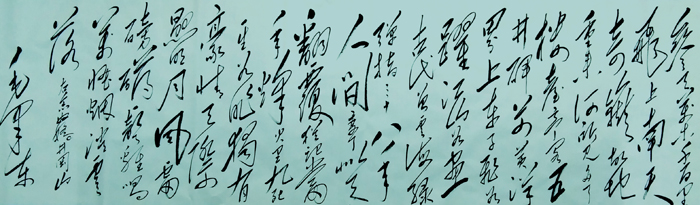 参天万木千百里
飞上南天
奇岳故地
重来何所见多了
楼台亭阁五
井碑前黄洋
界上车子飞如
跃江山如画
古代曾云海绿
弹指三十八年
人间变了似天
渊翻覆犹记当
时烽火里九死
一生如昨独有
豪情天际
悬明月风雷
磅礴一声鸡唱
万怪烟消云
落
井冈山
毛泽东